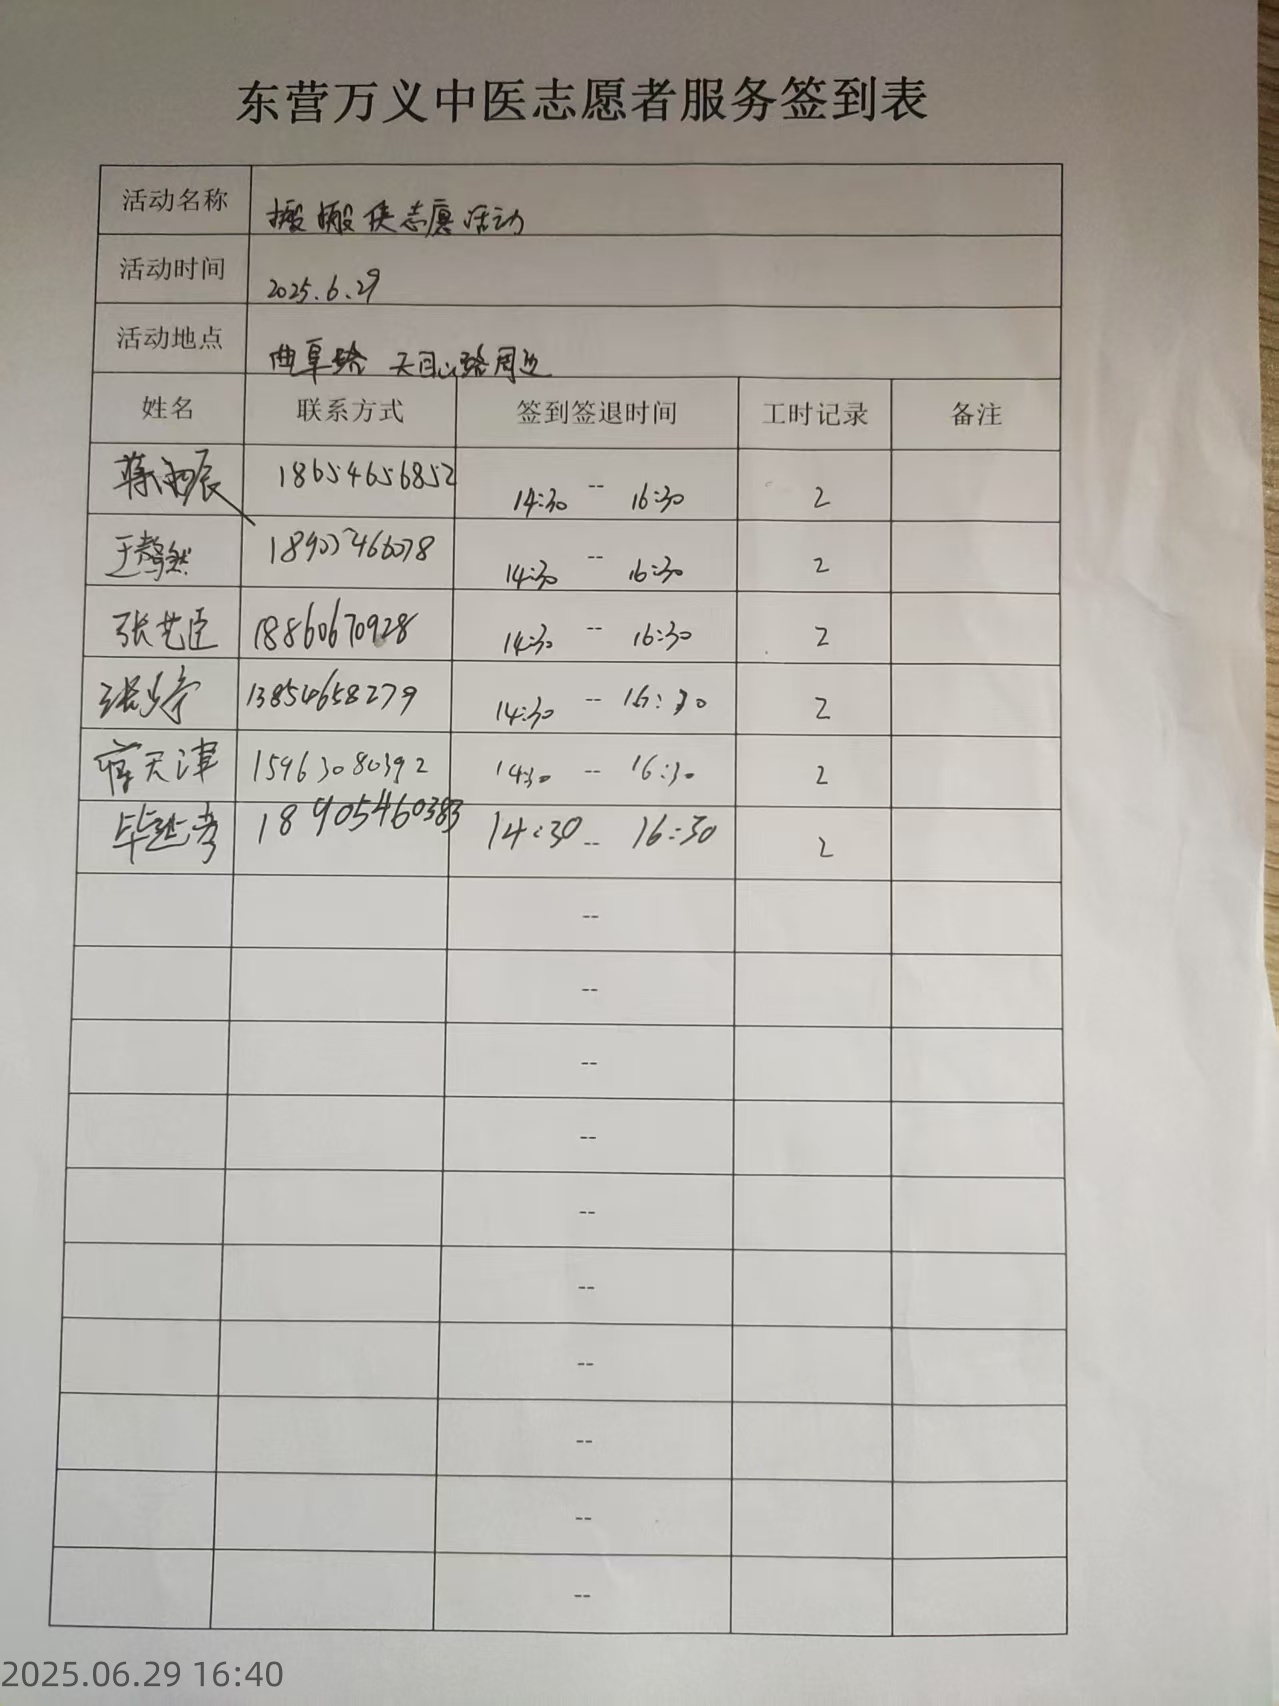 东营万义中医志愿者服务签到表
活动名称 搬搬侠志愿活动
活动时间 2025.6.29
活动地点 曲阜路 天目山路周边
姓名 联系方式 签到签退时间 工时记录 备注
18654656852 14:30 -- 16:30 2
14:30 -- 16:30 2
张艺臣 18860670928 14:30 -- 16:30 2
13854658279 14:30 -- 16:30 2
天津 15963080392 14:30 -- 16:30 2
毕 18905460383 14:30 -- 16:30 2
--
--
--
--
--
--
--
--
--
--
2025.06.29 16:40